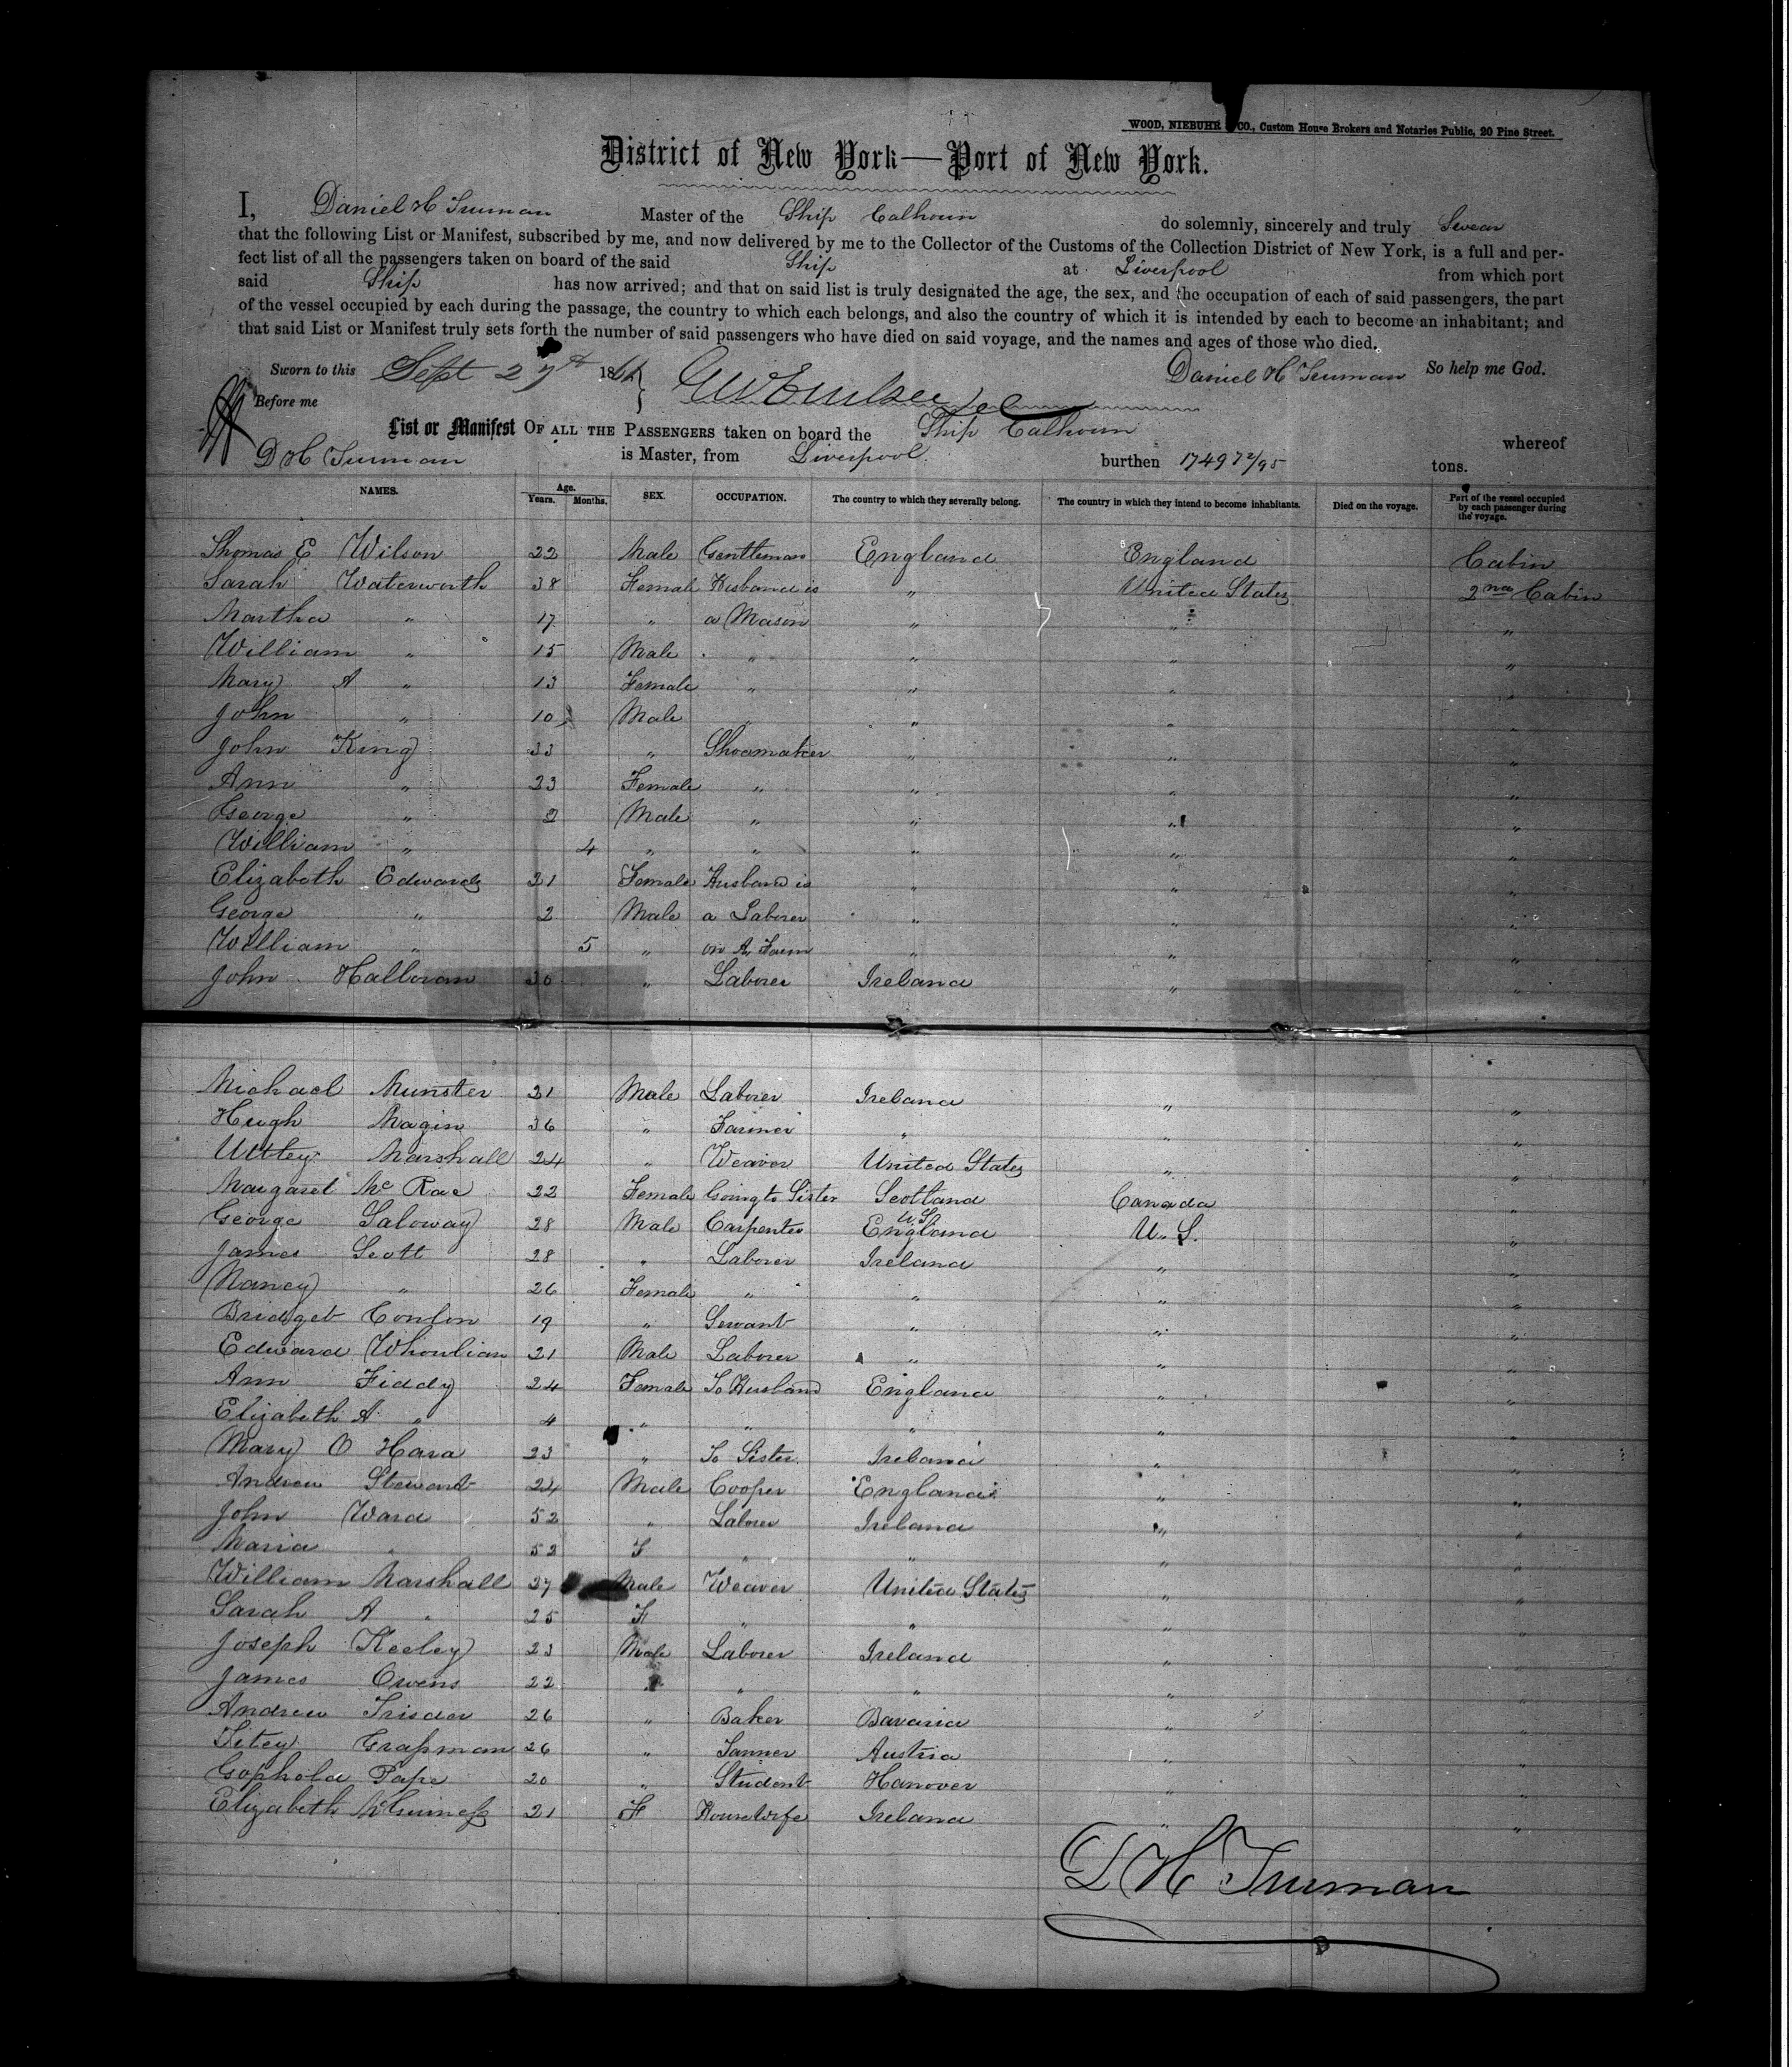 WOOD, NIEBUHR & CO., Custom House Brokers and Notaries Public, 20 Pine Street.
District of New York—Port of New York.
I, Daniel H Truman Master of the Ship Calhoun do solemnly, sincerely and truly Swear
that the following List or Manifest, subscribed by me, and now delivered by me to the Collector of the Customs of the Collection District of New York, is a full and per-
fect list of all the passengers taken on board of the said Ship at Liverpool from which port
said Ship has now arrived; and that on said list is truly designated the age, the sex, and the occupation of each of said passengers, the part
of the vessel occupied by each during the passage, the country to which each belongs, and also the country of which it is intended by each to become an inhabitant; and
that said List or Manifest truly sets forth the number of said passengers who have died on said voyage, and the names and ages of those who died.
Sworn to this Sept 27th 186 Daniel H Truman So help me God.
Before me
List or Manifest OF ALL THE PASSENGERS taken on board the Ship Calhoun whereof
D H Truman is Master, from Liverpool. burthen 1749 72/95 tons.
NAMES. Age. Years. Months. SEX. OCCUPATION. The country to which they severally belong. The country in which they intend to become inhabitants. Died on the voyage. Part of the vessel occupied by each passenger during the voyage.
Thomas E Wilson 22 Male Gentleman England England Cabin
Sarah Waterworth 38 Female Husband is " United States 2nd Cabin
Martha " 17 " a Mason " " "
William " 15 Male " " " "
Mary A " 13 Female " " " "
John " 10 Male " " " "
John King 33 " Shoemaker " " "
Ann " 23 Female " " " "
George " 2 Male " " " "
William " 4 " " " " "
Elizabeth Edwards 21 Female Husband is " " "
George " 2 Male a Laborer " " "
William " 5 " on A Farm " " "
John Halloran 30 " Laborer Ireland " "
Michael Munster 21 Male Laborer Ireland " "
Hugh Magin 36 " Farmer " " "
Uttley Marshall 24 " Weaver United States " "
Margaret Mc Rae 22 Female Going to Sister Scotland Canada "
George Saloway 28 Male Carpenter U.S. England U. S. "
James Scott 28 " Laborer Ireland " "
Nancy " 26 Female " " " "
Bridget Conlon 19 " Servant " " "
Edward Whoulian 21 Male Laborer " " "
Ann Fiddy 24 Female To Husband England " "
Elizabeth A " 4 " " " " "
Mary O Hara 23 " To Sister Ireland " "
Andrew Stewart 24 Male Cooper England " "
John Ward 52 " Laborer Ireland " "
Maria " 52 F " " " "
William Marshall 27 Male Weaver United States " "
Sarah A " 25 F " " " "
Joseph Keeley 23 Male Laborer Ireland " "
James Owens 22 " " " " "
Andrew Trisder 26 " Baker Bavaria " "
Grapman 26 " Tanner Austria " "
Gophold Pape 20 " Student Hanover " "
Elizabeth McGuiness 21 F Housewife Ireland " "
D H Truman